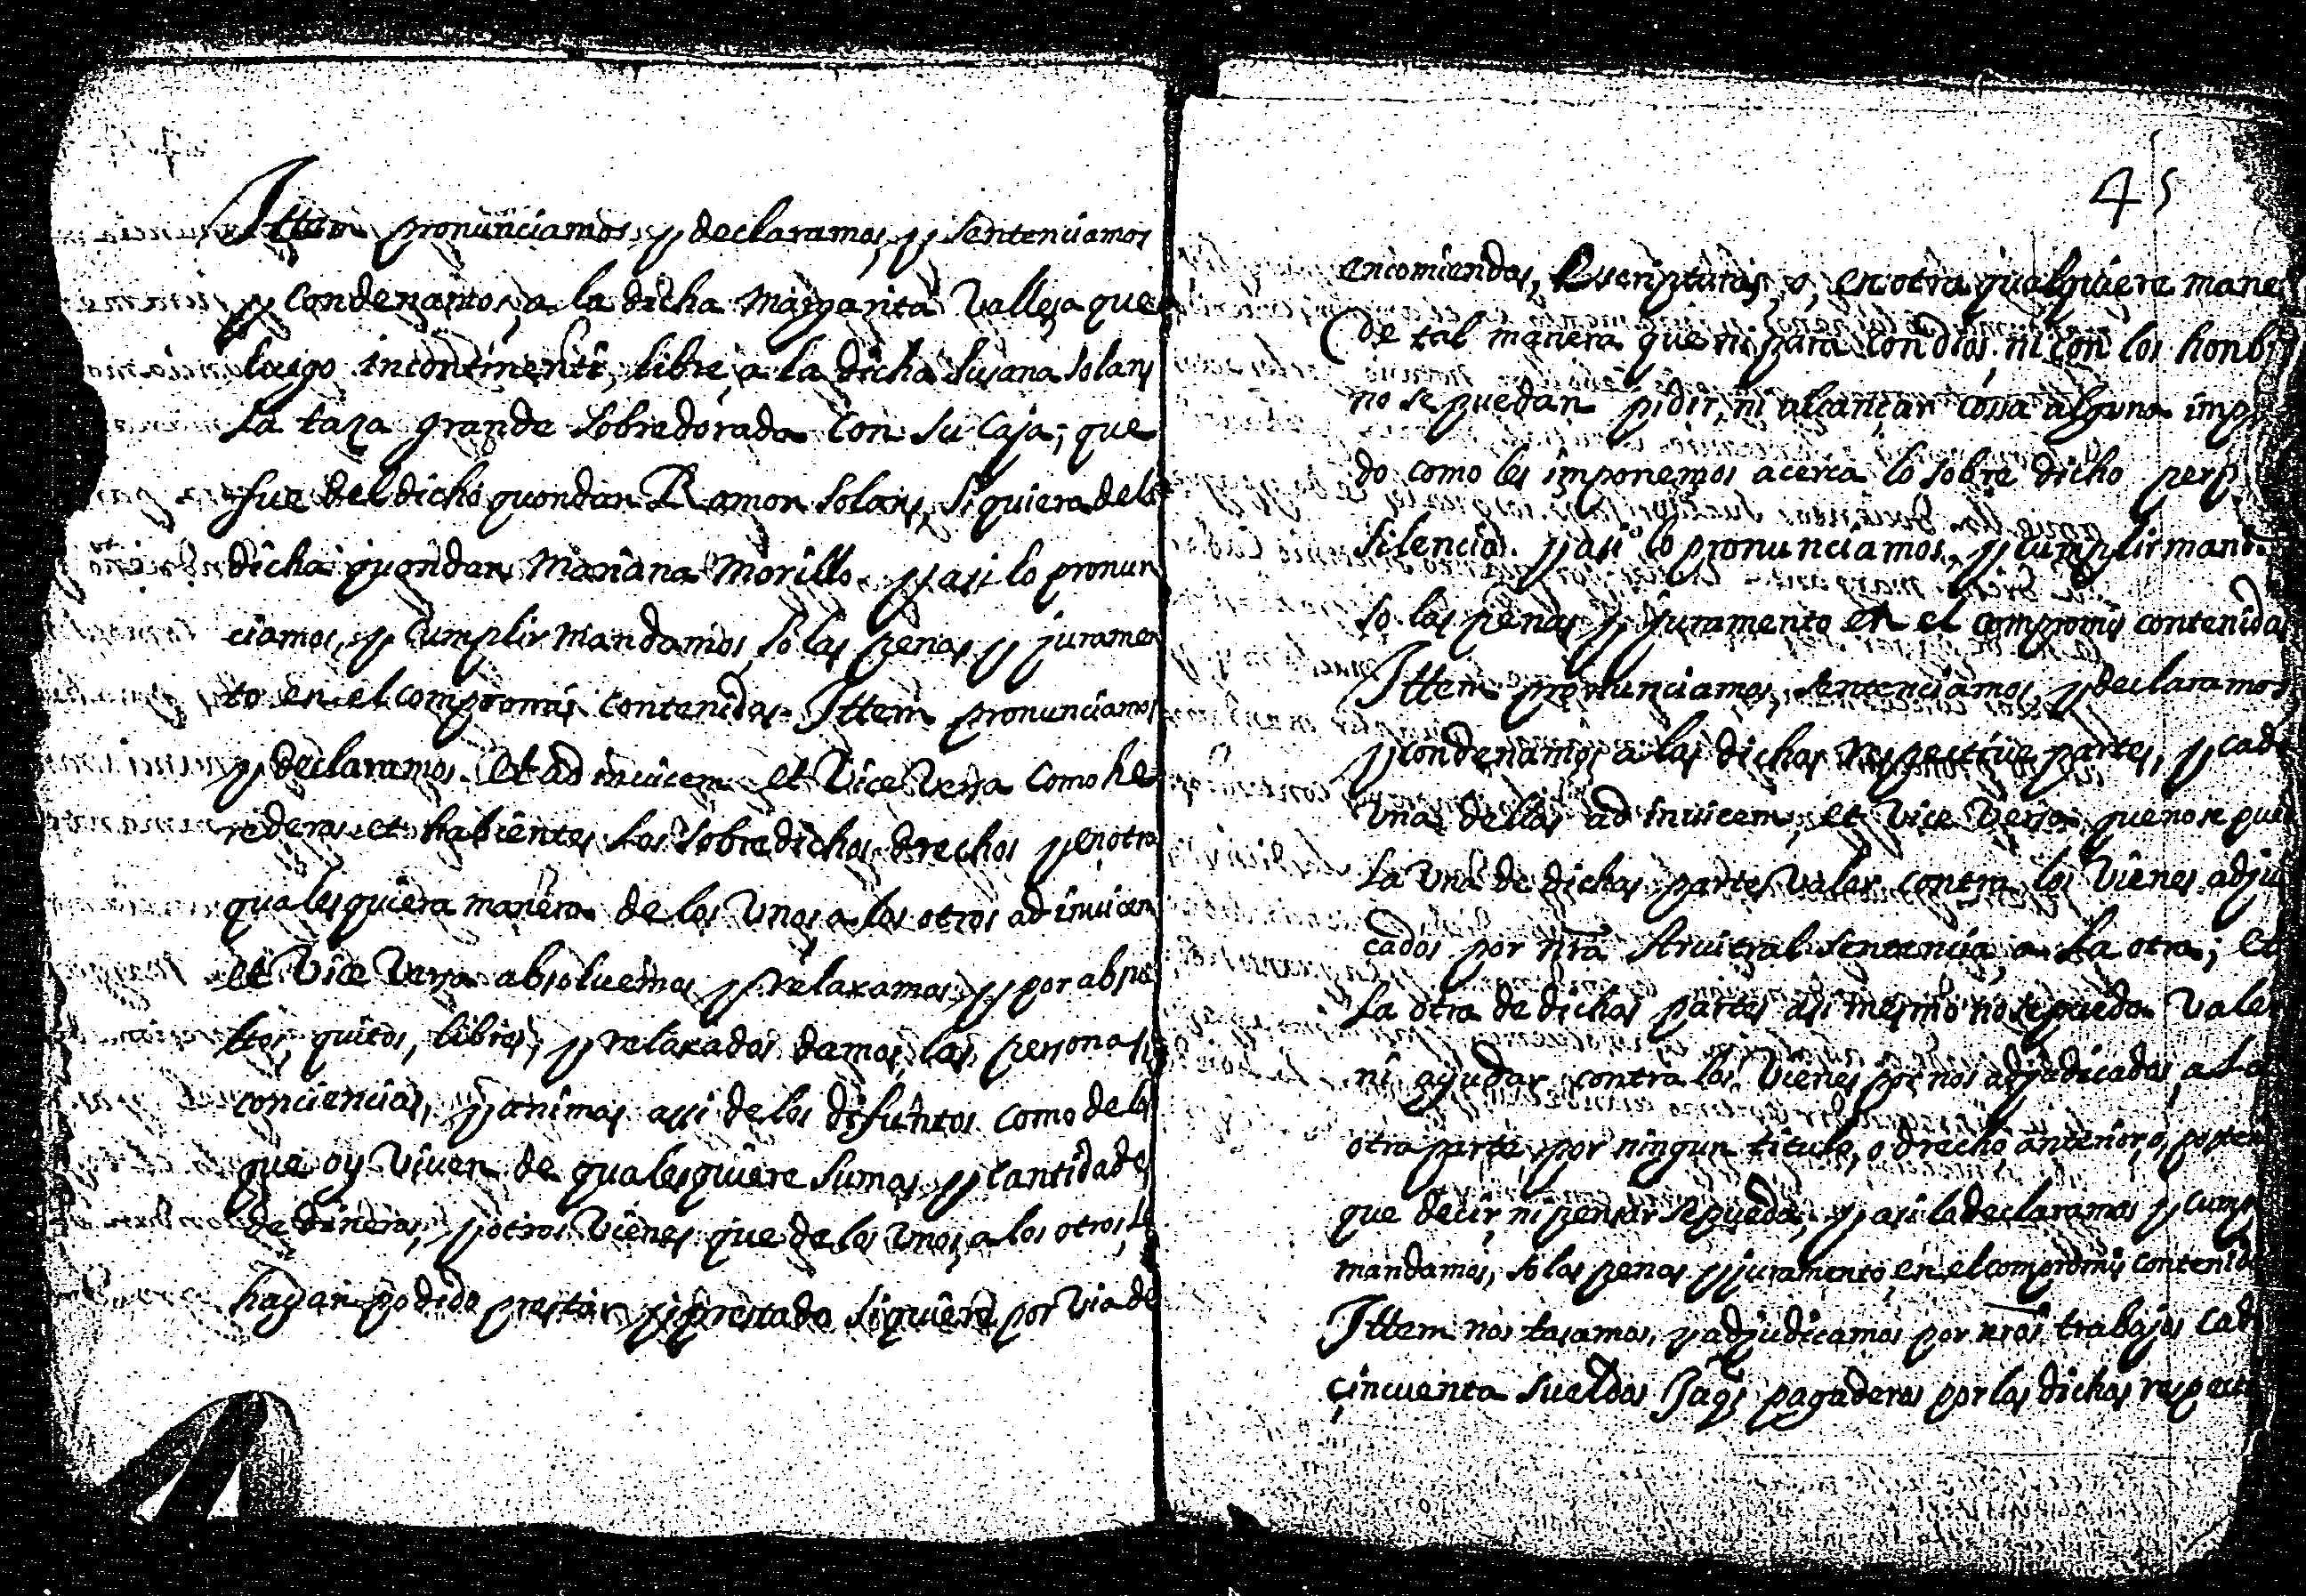 Ittem pronunciamos, y declaramos, y sentenciamos
y condenamos, a la dicha Margarita Valleja que
luego incontinenti, libre, a la dicha Susana Solans
la taza grande sobredorada con su caja; que
fue del dicho quondan Ramon Solans, siquiera dela
dicha quondan Mariana Morillo. y assi lo pronun
ciamos, y cumplir mandamos, so las penas, y juramen
to en el compromis contenidas. Ittem pronunciamos
y declaramos. et ad invicem et vice versa como he
rederas et habientes los sobredichos drechos y en otra
qualesquiera manera de los unos a los otros ad invicem
et vice versa absoluemos y relaxamos, y por absue
ltos, quitos, libres, y relaxados damos, las personas
conciencias, y animas assi de los difuntos como de los
que oy viuen de qualesquiere sumas, y cantidades
de dineros, y otros vienes que de los unos, a los otros, se
hayan podido prestar, y prestado siquiere por via de
45
encomiendas, Escripturas, o, en otra qualquiere mane
de tal manera que ni para con Dios, ni con los honbr
no se puedan pidir, ni alcançar cossa alguna imp
do como les imponemos acerca lo sobre dicho perp
silencio. y assi lo pronunciamos, y cumplir mand
so las penas y juramento en el compromis contenidas
Ittem pronunciamos, sentenciamos, y declaramos
y condenamos a las dichas respectiue partes, y cada
una dellas ad invicem, et vice versa que no se pued
la una de dichas partes valer contra los vienes adju
cados por nra Arvitral sentencia, a la otra; et
la otra de dichas partes asi mesmo no se pueda valer
ni ayudar contra los vienes por nos adjudicados, a la
otra parte, por ningun titulo, o drecho anterior, o, poster
que decir, ni pensar se pueda, y assi lo declaramos y cump
mandamos, so las penas y juramento, en el compromis contenid
Ittem nos tasamos, y adjudicamos por nros trabajos cad
çincuenta sueldos Jaqs pagaderos por las dichas respecti